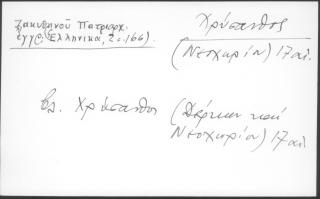 Ζακυθηνοῦ Πατριαρχ.
ἔγγρ. (Ἑλληνικά, 2 σ. 166)
Χρύσανθος
(Νεοχωρίου) 17 αἰ.
Βλ. Χρύσανθος (Δέρκων καὶ
Νεοχωρίου) 17 αἰ.